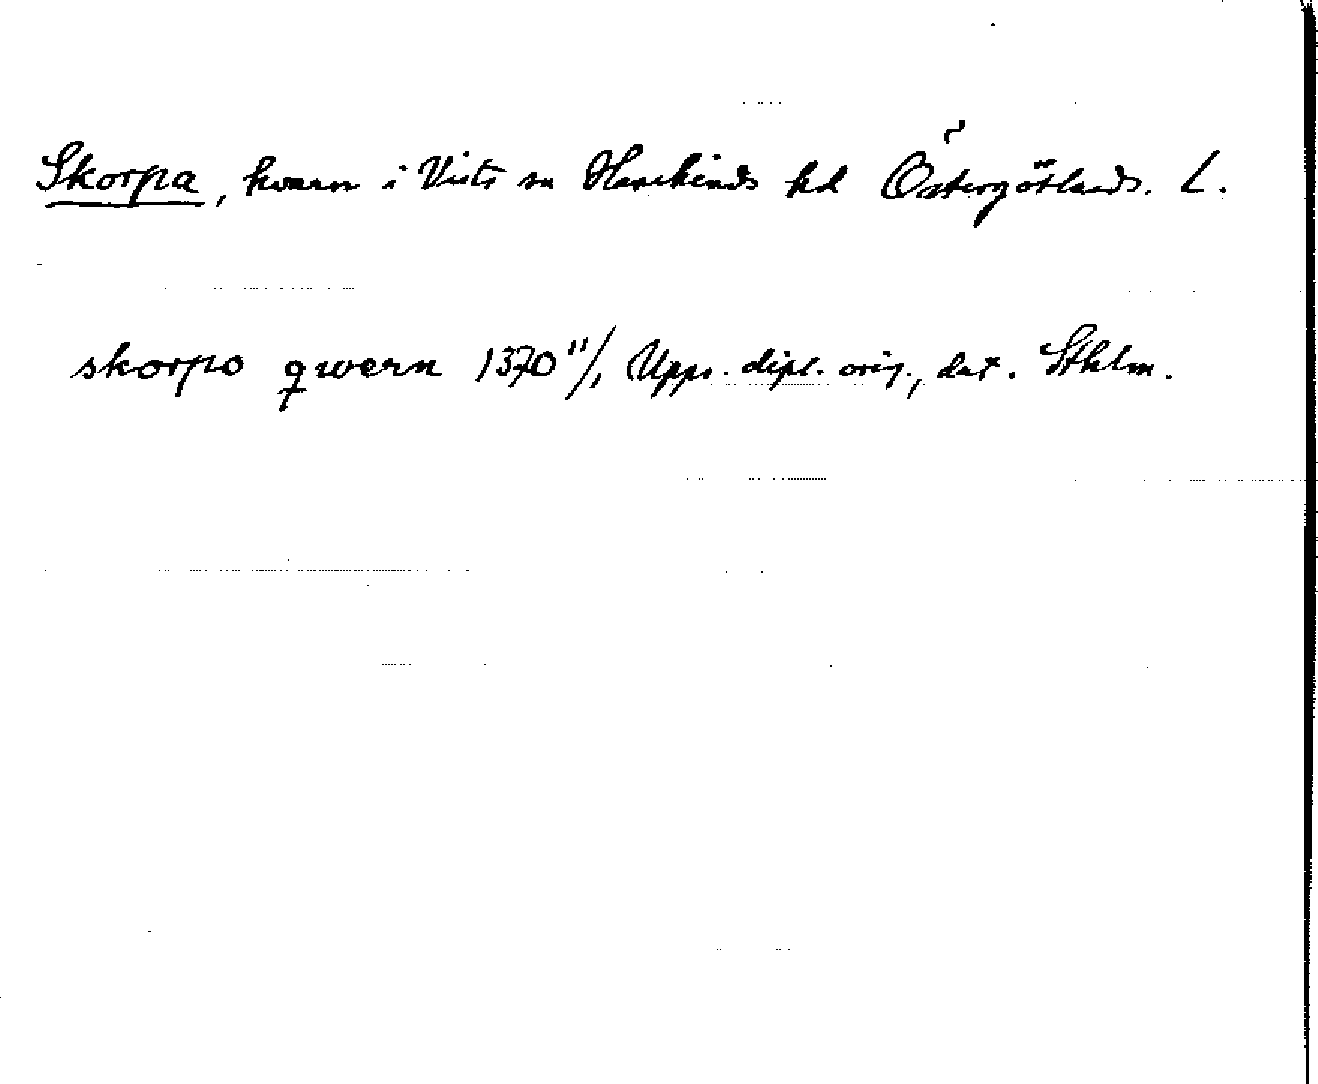 Skorpa, kvarn i Vists sn Hanekinds hd Östergötlands. L.
skorpo qwern 1370 11/1 Upps. dipl. orig., dat. Sthlm.